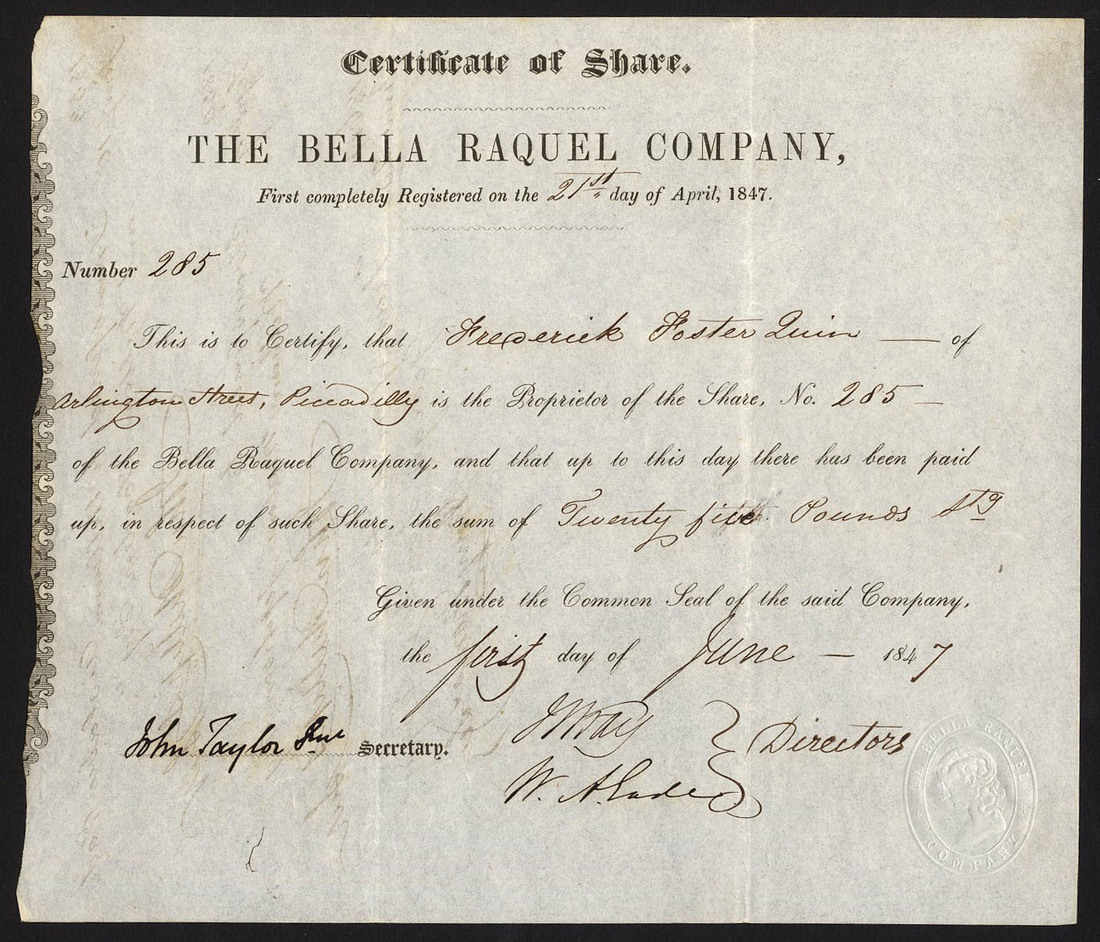 Certificate of Share.
THE BELLA RAQUEL COMPANY,
First completely Registered on the 21st day of April, 1847.
Number 285
This is to Certify, that Frederick Foster Quin — of
Arlington Street, Piccadilly is the Proprietor of the Share, No. 285 —
of the Bella Raquel Company, and that up to this day there has been paid
up, in respect of such Share, the sum of Twenty five Pounds Stg
Given under the Common Seal of the said Company,
the first day of June — 1847
John Taylor Secretary.
Directors
W. A.
BELLA RAQUEL
COMPANY